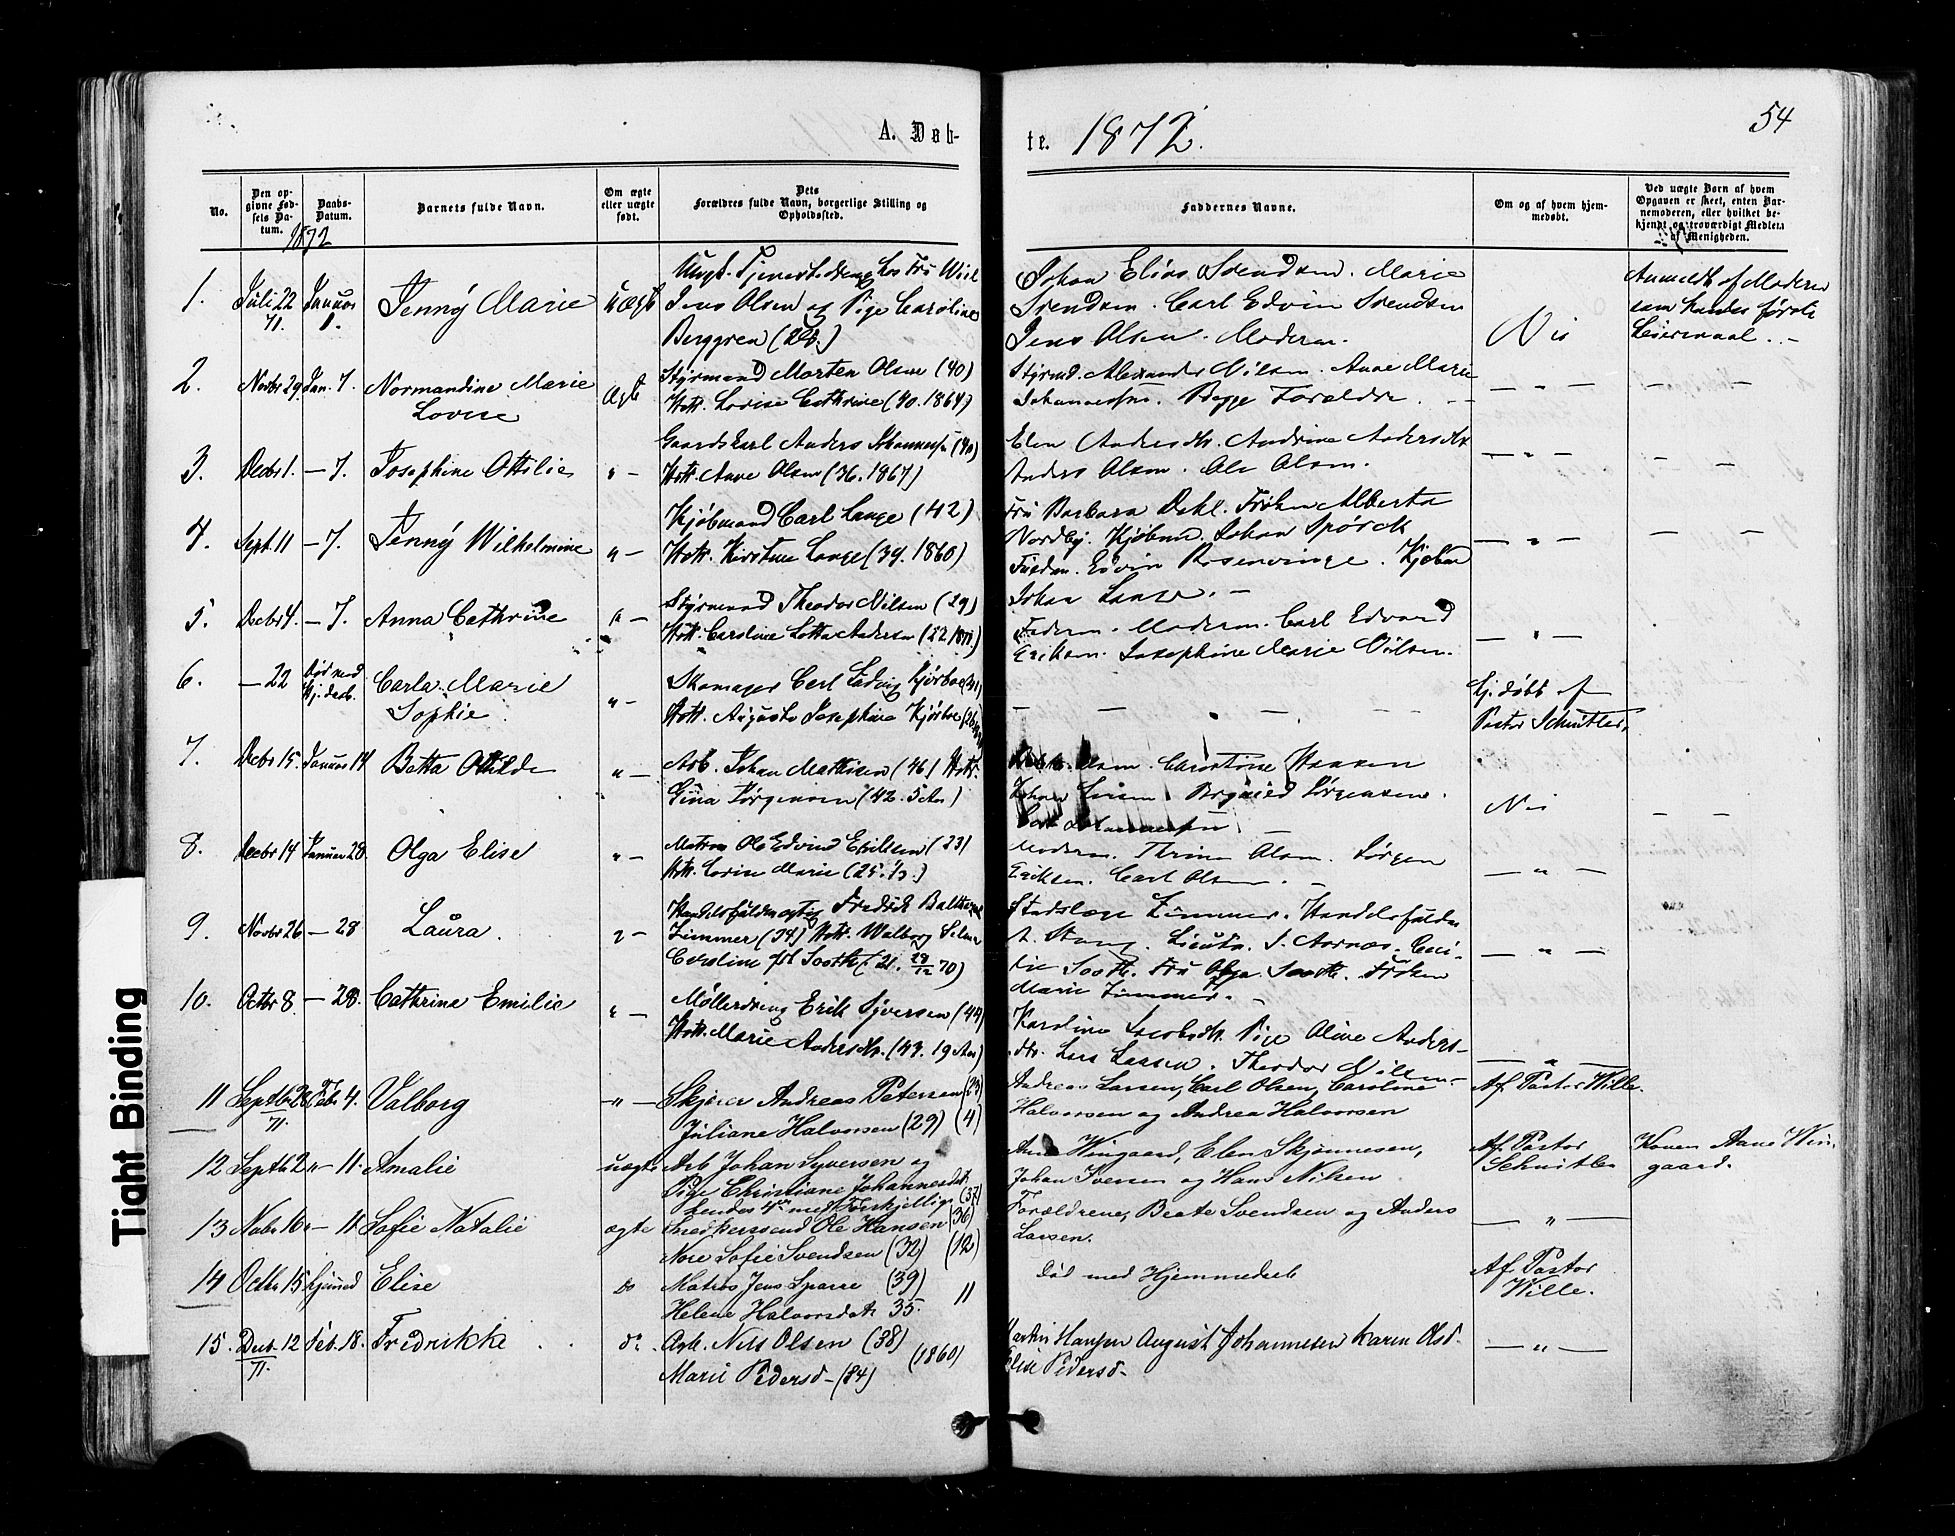 54
A. Døb-
te. 1872.
No.
Den opgivne Fødsels Datum.
Daabs-Datum.
1872
Barnets fulde Navn.
Om ægte eller uægte født.
Dets Forældres fulde Navn, borgerlige Stilling og Opholdssted.
Faddernes Navne.
Om og af hvem hjemmedøbt.
Ved uægte Børn af hvem Opgaven er skeet, enten Barnemoderen, eller hvilket bekjendt og troværdigt Medlem af Menigheden.
1. Juli 22 71. Januar 1. Jenny Marie uægte
Jens Olsen og Pige Caroline
Berggren
Johan Elias Svendsen. Marie
Svendsen. Carl Edvin Svendsen
Jens Olsen. Moderen.
Nei
Anmeldt af Moderen
som hendes første
Leiermaal. -
2. Novbr 29. Jan. 7. Normandine Marie
Lovise
Ægte
Styrmand Morten Olsen (40)
Hstr. Lovise Cathrine (40. 1864)
Styrmd. Alexander Nilsen. Anne Marie
Johannesen. Begge Forældre. -
— " — — —
3. Decbr 1. — 7. Josephine Ottilie " —
Gaardskarl Anders Johannesen (40)
Hstr. Anne Olsen (36. 1867)
Elen Andersdtr. Andrine Andersdtr.
Anders Olsen. Ole Olsen.
— " — — —
4. Sept. 11 — 7. Jenny Wilhelmine " —
Kjøbmand Carl Lange (42)
Hstr. Kirstine Lange (39. 1860)
Fru Barbara Dahl. Frøken Alberta
Nordby. Kjøbmd. Johan Spørck
Fuldm. Edvin Rosenvinge. Kjøbmd
Johan Lange. -
— " — — —
5. Decbr 4. — 7. Anna Cathrine " —
Styrmand Theodor Nilsen (29)
Hstr. Caroline Lotta Andersen
Faderen. Moderen. Carl Edvard
Eriksen. Josephine Marie Nilsen.
— " —
6. — 22 Død med Hj. daab. Carla Marie
Sophie.
" —
Skomager Carl Ludvig Kjørboe
Hstr. Augusta Josephine Kjørboe
— — — — —
Hj. døbt af
Pastor Schnitler.
7. Decbr 15. Januar 14 Betta Otilde " —
Arb. Johan Mathisen (46) Hstr.
Gina Jørgensen (42. 5 Aar)
Olsen. Christine Hansen
Larsen. Jørgensen.
Johannessen
Nei — —
8. Decbr 14 Januar 28. Olga Elise " —
Matros Ole Edvind Eriksen (23)
Hstr. Lovise Marie
Moderen. Thrine Olsen. Jørgen
Eriksen. Carl Olsen. -
— " —
9. Novbr 26 — 28. Laura. " —
Handelsfuldmægtig Fredrik Balthazar
Zimmer (34) Hstr. Walborg Selma
Caroline født Sooth (21. 29/12 70)
Stadslæge Zimmer. Handelsfuldm.
Stang. Lieutn. J. Aarnæs. Ceci-
lie Sooth. Fru Olga Sooth. Frøken
Marie Zimmer. -
— " —
10. Octbr 8. — 28. Cathrine Emilie " —
Møllerdreng Erik Syversen (44)
Hstr. Marie Andersdtr. (43. 19 Aar)
Karoline Jacobsdtr. Pige Oline Anders-
dtr. Lars Larsen. Theodor Nilsen —
— " —
11 Septbr 28 71. Febr 4. Valborg — " —
Skjærer Andreas Petersen (23)
Juliane Halvorsen (29) (4)
Andreas Larsen, Carl Olsen, Caroline
Halvorsen og Andrea Halvorsen
Af Pastor Wille.
12 Septbr 2 " — 11. Amalie uægte
Arb Johan Syversen og
Pige Christiane Johannesdatr
hendes 4de med Forskjellige (37)
Anne Wingaard, Elen Skjønnesen,
Johan Iversen og Hans Nilsen
Af Pastor
Schnitler
Konen Anne Win-
gaard.
13 Novbr 16 " — 11. Sofie Natalie ægte
Snedkersvend Ole Hansen (36)
Nore Sofie Svendsen (32) (12)
Forældrene, Beate Svendsen og Anders
Larsen.
— " —
14 Octbr 15 Elise do
Matros Jens Sparre (39)
Helene Halvorsdatr 35. 11
Død med Hjemmedaab
Af Pastor
Wille.
15. Decb. 12 71. Feb. 18. Fredrikke do.
Arb. Nils Olsen (38)
Marie Pedersd — (34) (1860)
Martin Hansen August Johannesen Karen Olsd.
Elise Pedersd.
— " —
Tight Binding